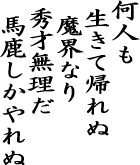 何人も
生きて帰れぬ
魔界なり
秀才無理だ
馬鹿しかやれぬ